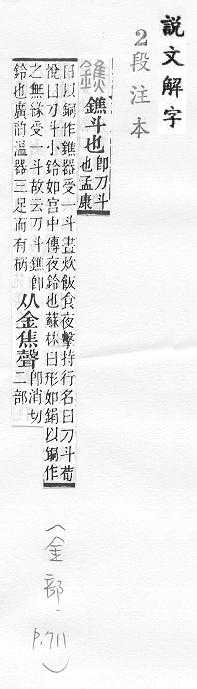 說文解字
2段注本
鐎 鐎斗也 卽刀斗也孟康
曰以銅作鐎器受一斗晝炊飯食夜擊持行名曰刀斗荀
悅曰刀斗小鈴如宮中傳夜鈴也蘇林曰形如鋗以銅作
之無緣受一斗故云刀斗鐎卽
鈴也廣韵溫器三足而有柄 从金焦聲 卽消切二部
(金部,P.711)